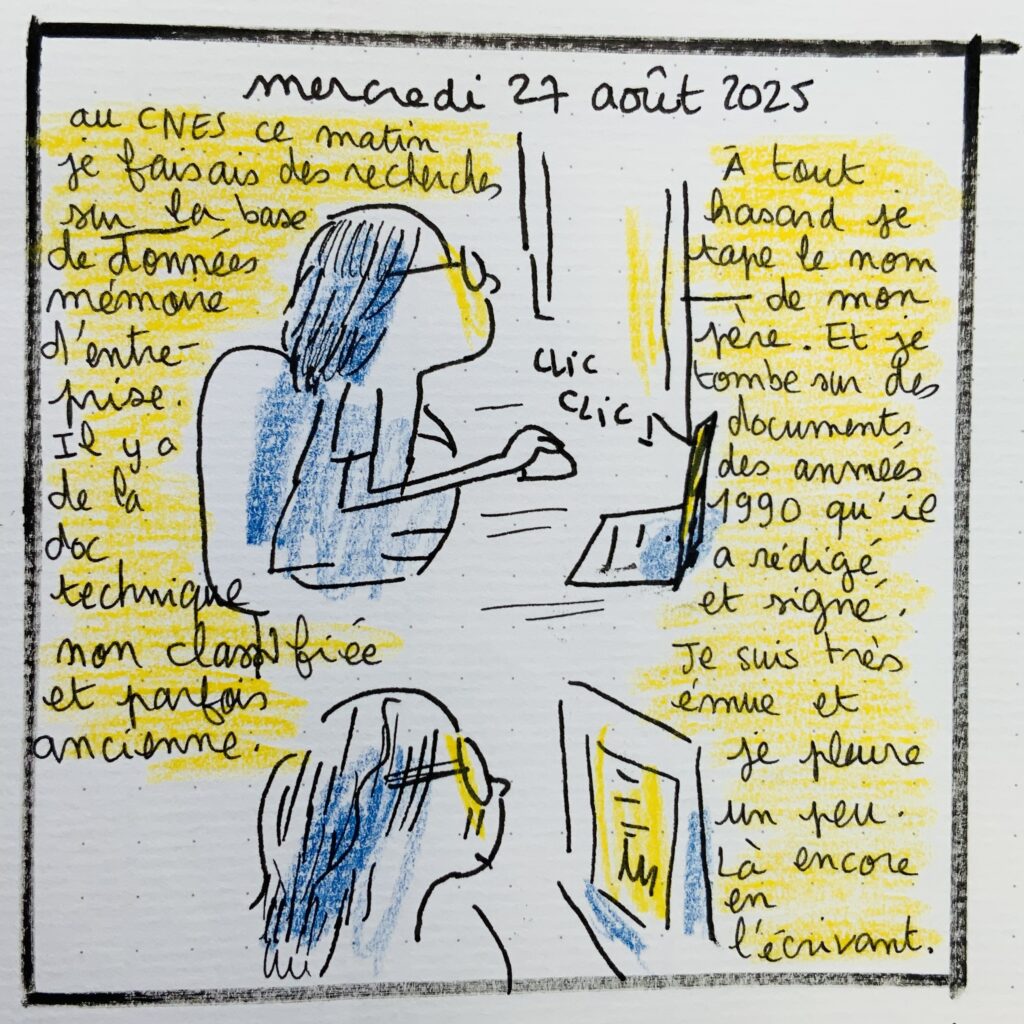 mercredi 27 août 2025
au CNES ce matin
je faisais des recherches
sur la base
de données
mémoire
d'entre-
prise.
Il y a
de la
doc
technique
non classifiée
et parfois
ancienne.
CLIC
CLIC
À tout
hasard je
tape le nom
de mon
père. Et je
tombe sur des
documents
des années
1990 qu'il
a rédigé
et signé.
Je suis très
émue et
je pleure
un peu.
Là encore
en
l'écrivant.